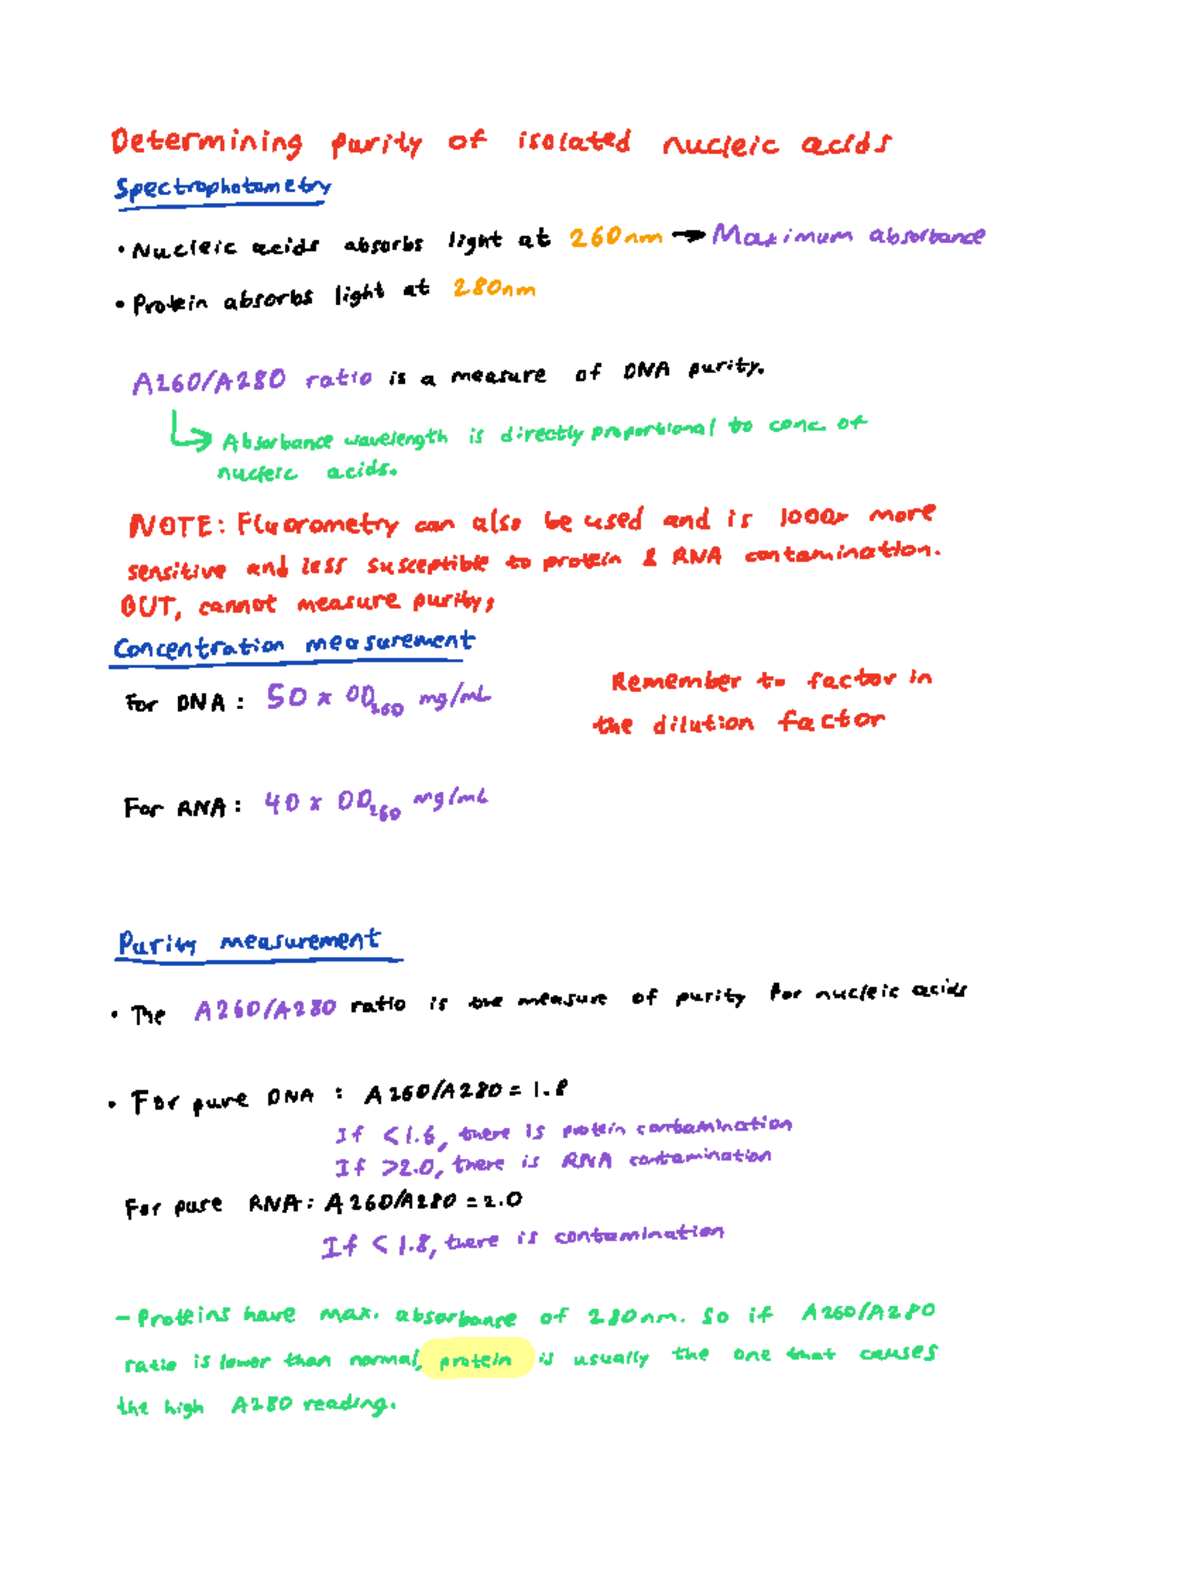 Determining purity of isolated nucleic acids
Spectrophotometry
• Nucleic acids absorbs light at 260nm → Maximum absorbance
• Protein absorbs light at 280nm
A260/A280 ratio is a measure of DNA purity.
↳ Absorbance wavelength is directly proportional to conc. of
nucleic acids.
NOTE: Fluorometry can also be used and is 1000x more
sensitive and less susceptible to protein & RNA contamination.
BUT, cannot measure purity;
Concentration measurement
For DNA: 50 x OD260 mg/mL
Remember to factor in
the dilution factor
For RNA: 40 x OD260 mg/mL
Purity measurement
• The A260/A280 ratio is the measure of purity for nucleic acids
• For pure DNA : A260/A280 = 1.8
If <1.6, there is protein contamination
If >2.0, there is RNA contamination
For pure RNA: A260/A280 = 2.0
If < 1.8, there is contamination
- Proteins have max. absorbance of 280nm. So if A260/A280
ratio is lower than normal, protein is usually the one that causes
the high A280 reading.